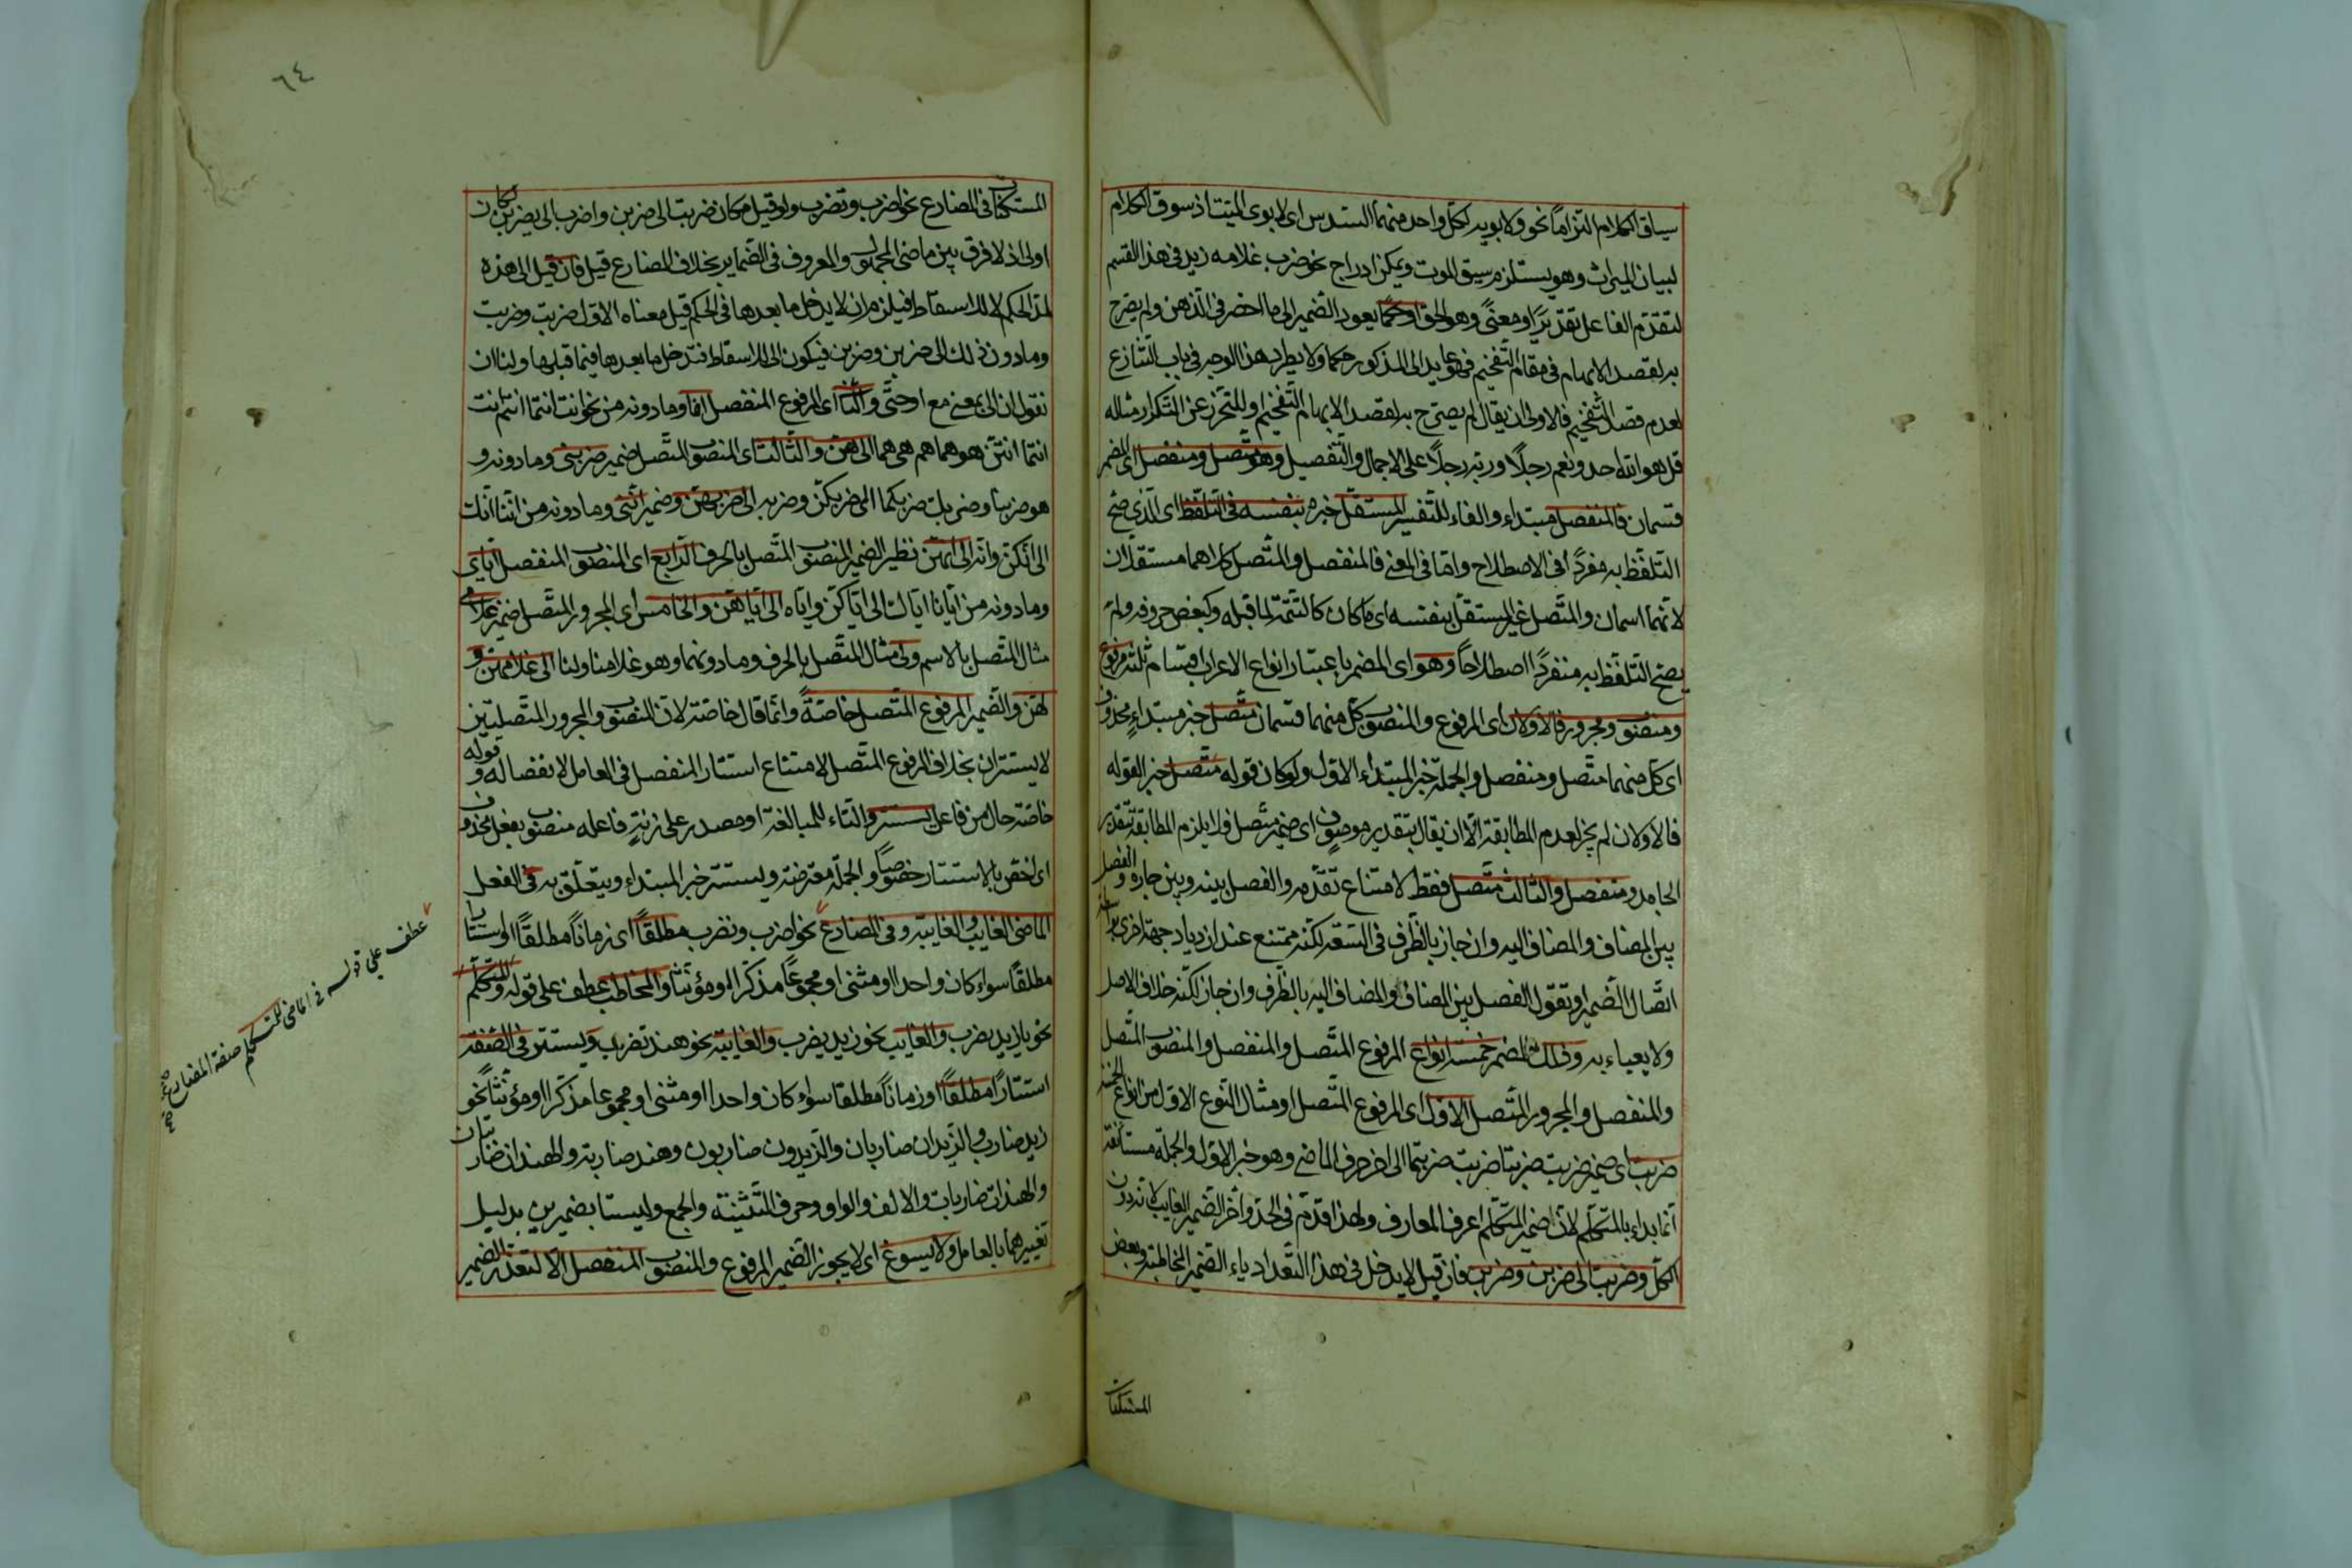 سياق الكلام التزاما نحو ولابويه لكل واحد منهما السدس اى لابوى الميت اذ سوق الكلام
لبيان الميراث وهو يستلزم سبق الموت ويمكن ادراج نحو ضرب غلامه زيد فى هذا القسم
لتقدم الفاعل تقديرا او معنى وهو الحق او حكما بعود الضمير الى ما احضر فى الذهن ولم يصرح
به لقصد الابهام فى مقام التفخيم فهو عايد الى المذكور حكما ولا يطرد هذا الوجه فى باب التنازع
لعدم قصد التفخيم فالاولى ان يقال لم يصرح به لقصد الابهام التفخيم وللتحرز عن التكرار مثاله
قل هو الله احد ونعم رجلا وربه رجلا على الاجمال والتفصيل وهو متصل ومنفصل اى المضمر
قسمان فالمنفصل مبتداء والفاء للتفسير المستقل خبره بنفسه فى التلفظ اى الذى صح
التلفظ به مفردا فى الاصطلاح واما فى المعنى فالمنفصل والمتصل كلاهما مستقلان
لانهما اسمان والمتصل غير المستقل بنفسه اى ما كان كالتتمة لما قبله وكبعض حروفه ولم
يصح التلفظ به منفردا اصطلاحا وهو اى المضمر باعتبار انواع الاعراب اقسام ثلثة مرفوع
ومنصوب ومجرور فالاولان اى المرفوع والمنصوب كل منهما قسمان متصل خبر مبتداء محذوف
اى كل منهما متصل ومنفصل والجملة خبر المبتداء الاول ولو كان قوله متصل خبر القوله
فالاولان لم يجز لعدم المطابقة الا ان يقال بتقدير موصوف اى ضمير متصل فلا يلزم المطابقة لتقدير
الجامد ومنفصل والثالث متصل فقط لامتناع تقدمه والفصل بينه وبين جاره والفصل
بين المضاف والمضاف اليه وان جاز بالظرف فى السعة لكنه ممتنع عند ازدياد جهة اخرى
اتصال الضمير او تقول الفصل بين المضاف والمضاف اليه بالظرف وان جاز لكنه خلاف الاصل
ولا يعباء به وذلك المضمر خمسة انواع المرفوع المتصل والمنفصل والمنصوب المتصل
والمنفصل والمجرور المتصل الاول اى المرفوع المتصل او مثال النوع الاول من انواع الخمسة
ضربت اى ضمير ضربت ضربنا ضربت ضربتما الى اخر حرف الماضى وهو خبر الاول والجملة مستانفة
انما بداء بالمتكلم لان ضمير المتكلم اعرف المعارف ولهذا قدم فى الحد واخر الضمير الغايب لانه دون
الكل وضربت الى ضربن وضربن فان قيل لا يدخل فى هذا التعداد ياء الضمير المخاطبة وبعض
المستكنات
٦٤
المستكنات فى المضارع نحو اضرب وتضرب ولو قيل مكان ضربت الى ضربن واضرب الى يضربن لكان
اولى اذ لا فرق بين ماضى المجهول والمعروف فى الضماير بخلاف المضارع قيل فان قيل الى هذه
لمد الحكم لا للاسقاط فيلزم ان لا يدخل ما بعدها فى الحكم قيل معناه الاول ضربت وضربت
وما دون ذلك الى ضربن وضربن فيكون الى للاسقاط فتدخل ما بعدها فيما قبلها ولنا ان
نقول ان الى بمعنى مع او حتى والثانى اى المرفوع المنفصل انا وما دونه من نحو انت انتما انتم انت
انتما انتن هو هما هم هى هما الى هن والثالث اى المنصوب المتصل ضمير ضربنى وما دونه و
هو ضربنا وضربك ضربكما الى ضربكن وضربه الى ضربهن وضمير اننى وما دونه من اننا انك
الى انكن وانه الى انهن نظير الضمير المنصوب المتصل بالحرف الرابع اى المنصوب المنفصل اياى
وما دونه من ايانا اياك الى اياكن واياه الى اياهن والخامس اى المجرور المتصل ضمير غلامى
مثال المتصل بالاسم ولى مثال المتصل بالحرف وما دونهما وهو غلامنا ولنا الى غلامهن و
لهن والضمير المرفوع المتصل خاصة وانما قال خاصة لان المنصوب والمجرور المتصلين
لا يستتران بخلاف المرفوع المتصل لامتناع استتار المنفصل فى العامل لانفصاله وقوله
خاصة حال من فاعل يستتر والتاء للمبالغة او مصدر على زنة فاعله منصوب بفعل محذوف
اى اخص بالاستتار خصوصا والجملة معترضة ويستتر خبر المبتداء ويتعلق به فى الفعل
الماضى الغايب والغايبة وفى المضارع نحو اضرب ونضرب مطلقا اى زمانا مطلقا او استتارا
مطلقا سواء كان واحدا او مثنى او مجموعا مذكرا او مؤنثا والمخاطب عطف على قوله للمتكلم
نحو يا زيد تضرب والغايب نحو زيد يضرب والغايبة نحو هند تضرب ويستتر فى الصفة
استتارا مطلقا او زمانا مطلقا سواء كان واحدا او مثنى او مجموعا مذكرا او مؤنثا نحو
زيد ضارب والزيدان ضاربان والزيدون ضاربون وهند ضاربة والهندان ضاربتان
والهندات ضاربات والالف والواو وحرف التثنية والجمع وليستا بضميرين بدليل
تغييرهما بالعامل ولا يسوغ اى لا يجوز الضمير المرفوع والمنصوب المنفصل الا لتعذر الضمير
عطف على قوله فى الماضى للمتكلم صفة المضارع